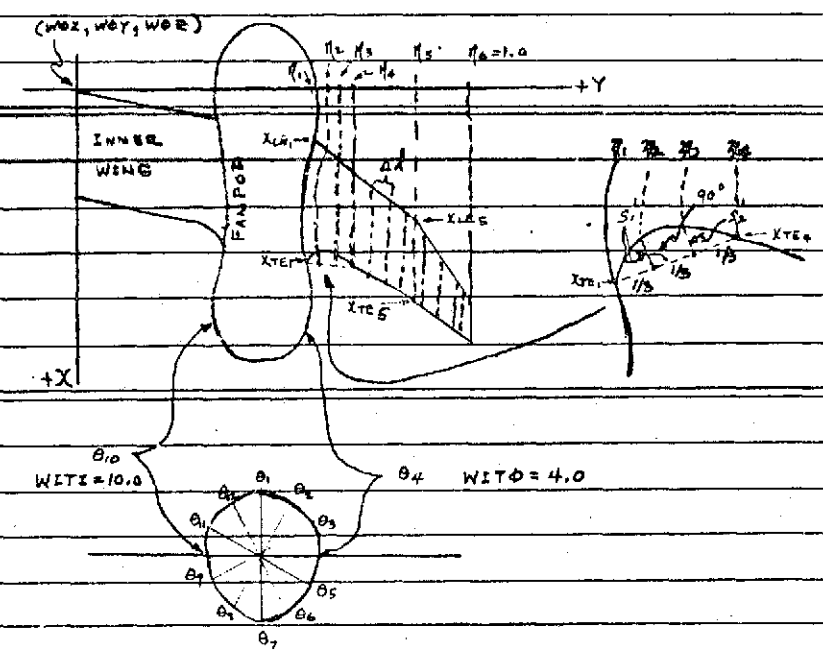 (WØX, WØY, WØZ)
η₁ η₂ η₃ η₄ η₅ η₆=1.0
+Y
INNER
WING
FANPOD
X_LE₁
Δd
X_LE₅
X_TE₁
X_TE₅
η₁ η₂ η₃ η₄
90°
S₁ S₂
X_TE₄
X_TE₁
1/3 1/3 1/3
+X
θ₁₀ θ₄
WITI=10.0 WITØ=4.0
θ₁
θ₁₂ θ₂
θ₁₁ θ₃
θ₉ θ₅
θ₆
θ₇